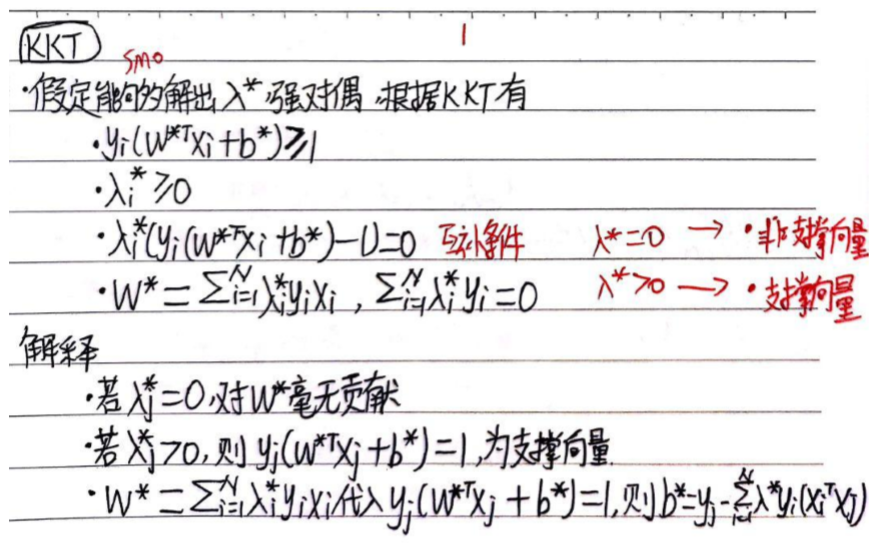 KKT
SMO
·假定能够解出λ*,强对偶,根据KKT有
·yi(w*ᵀxi+b*)≥1
·λi*≥0
·λi*(yi(w*ᵀxi+b*)-1)=0 互补条件 λ*=0 → ·非支撑向量
·W*=∑ᵢ₌₁ᴺλi*yixi, ∑ᵢ₌₁ᴺλi*yi=0 λ*>0 → ·支撑向量
解释
·若λj*=0,对W*毫无贡献
·若λj*>0,则yj(w*ᵀxj+b*)=1,为支撑向量
·W*=∑ᵢ₌₁ᴺλi*yixi代入yj(w*ᵀxj+b*)=1,则b*=yj-∑ᵢ₌₁ᴺλ*yi(xiᵀxj)